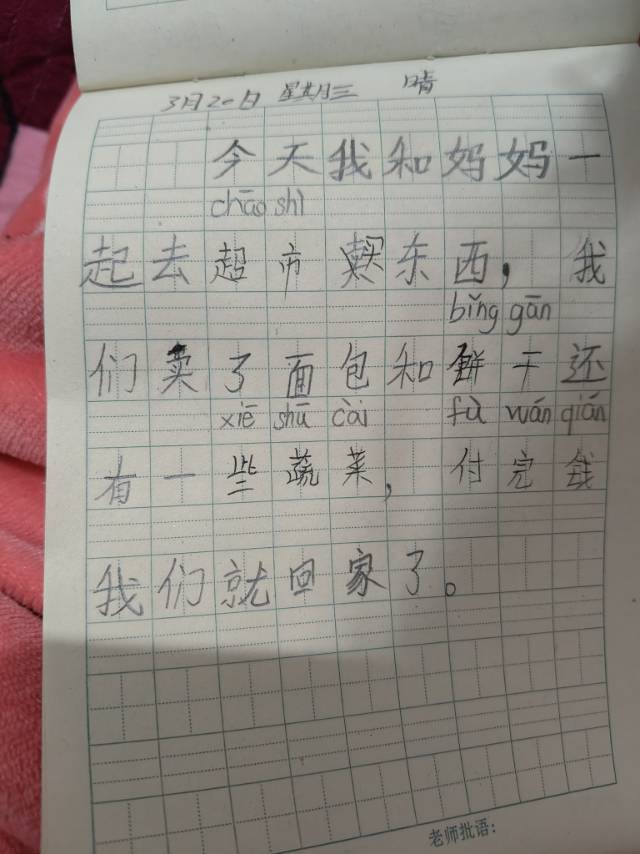 3月20日 星期三 晴
今天我和妈妈一
chāo shì
起去超市买东西，我
bǐng gān
们卖了面包和饼干还
xiē shū cài fù wán qián
有一些蔬菜，付完钱
我们就回家了。
老师批语：